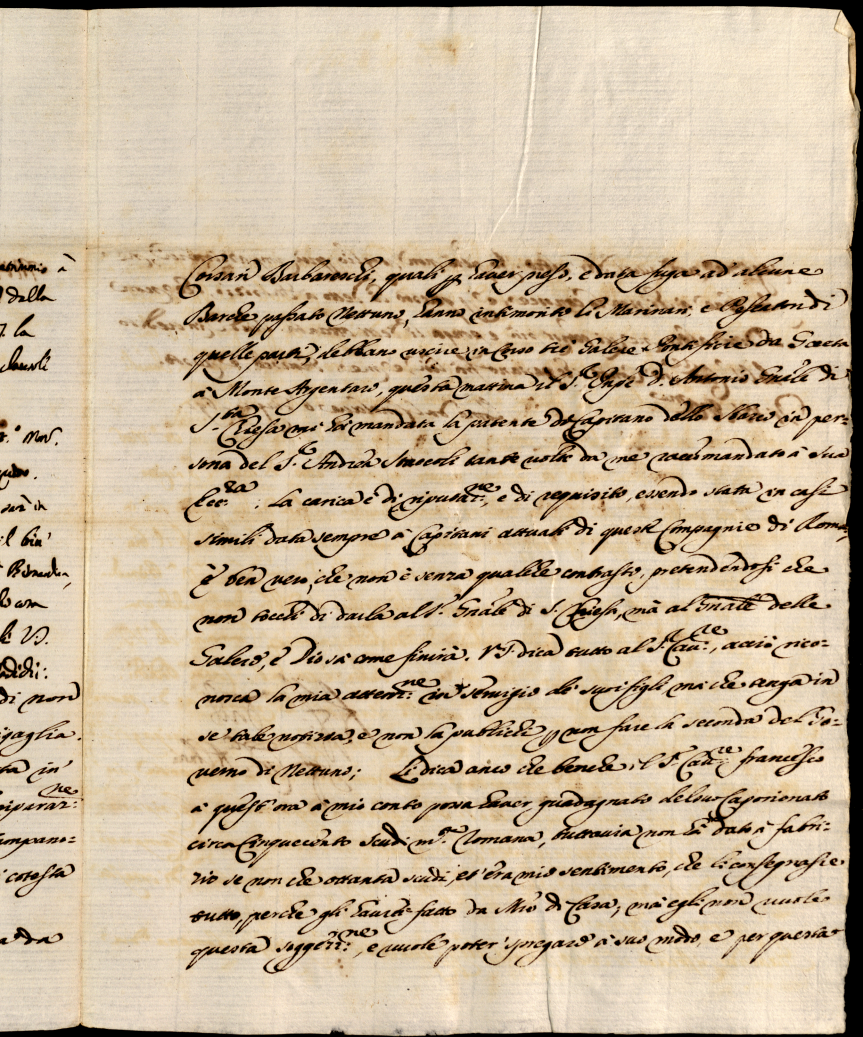 Corsari Barbareschi, quali p haver preso, e data fuga ad alcune
Barche passato Nettuno, hanno intimorito li Marinari, e Pescatori di
quelle parti, debbano uscire in Corso tre Galere Pontificie da Gaeta
à Monte Argentaro, questa mattina il S.r D. Antonio Gnãle di
S.ta Chiesa mi hà mandata la patente di Capitano dello Sbarco in per=
sona del S.r Andrea tante volte da me racomandato à Sua
Ecc.za, la carica è di riputaz.ne, e di requisito, essendo stata in casi
simili data sempre à Capitani attuali di queste Compagnie di Roma,
è ben vero, che non è senza qualche contrasto, pretendendosi che
non tocchi di darla al S.r Gnãle di S. Chiesa, mà al Gnãle delle
Galere, e Dio sà come finirà. V.S. dica tutto al S.r Cav.re, acciò rico=
nosca la mia attenz.ne in servigio de suoi figli, mà che tenga in
se tale notizia, e non la publichi p non fare la seconda del Go=
verno di Nettuno; Li dica anco che benche il S.r Cav.re francesco
à quest'ora à mio conto possa haver guadagnato del suo Caporionato
circa Cinquecento scudi m.ta Romana, tuttavia non hà dato à fabri=
zio se non che ottanta scudi, et era mio sentimento, che li consegnasse
tutto, perche gli havrei fatto da Mro di Casa, mà egli non vuole
questa soggez.ne, e vuole poter spregare à suo modo, e per questa
à
dalla
la
Nov.
sarà in
il
di non
ta in
riparaz.ne
cotesta
da